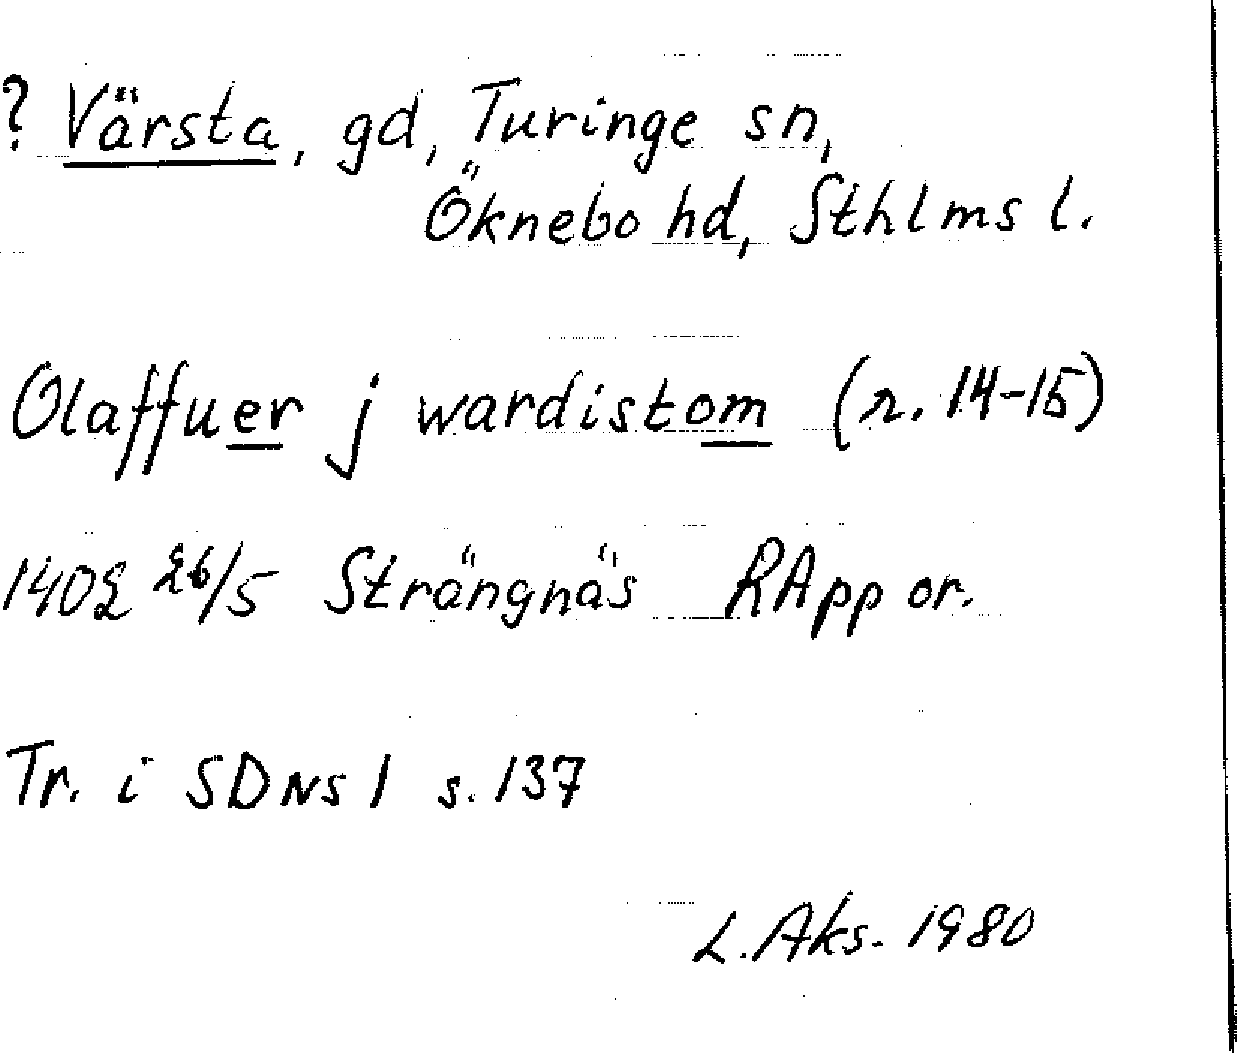 ? Värsta, gd, Turinge sn,
Öknebo hd, Sthlms l.
Olaffuer j wardistom (r. 14-15)
1402 26/5 Strängnäs RApp or.
Tr. i SDNS 1 s. 137
L. Aks. 1980